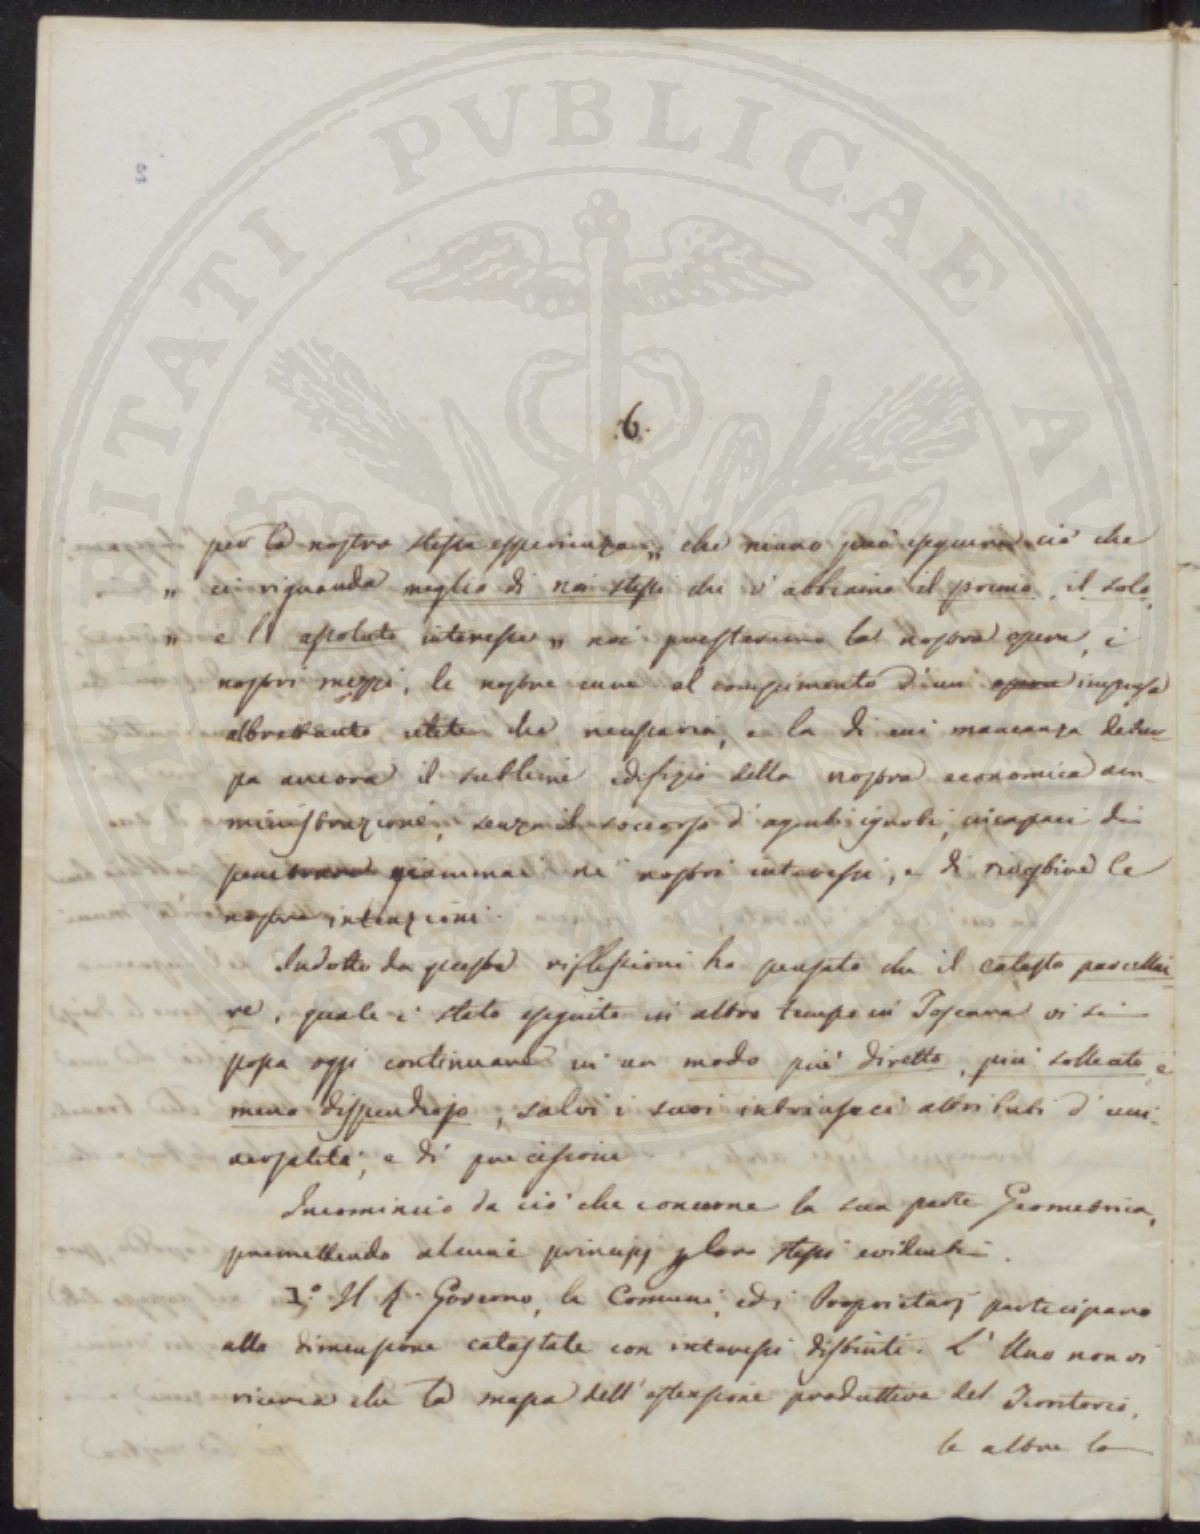 PROSPERITATI PVBLICAE AV
2
.6.
per la nostra stessa esperienza „ che niuno può eseguire ciò che
„ ci riguarda meglio di noi stessi che v'abbiamo il primo, il solo,
„ e l'assoluto interesse „ noi presteremo la nostra opera, i
nostri mezzi, le nostre cure al compimento d'un opera impresa
altrettanto utile che necessaria, e la di cui mancanza detur-
pa ancora il sublime edifizio della nostra economica am-
ministrazione, senza il soccorso d'agenti ignobi, incapaci di
penetrare giammai ne' nostri interessi, e di riagbire le
nostre intenzioni.
Indotto da queste riflessioni ho pensato che il catasto parcella-
re, quale è stato eseguito in altro tempo in Toscana vi si
possa oggi continuare in un modo più diretto, più sollecito, e
meno dispendioso, salvi i suoi intrinseci attributi d'uni-
versalità, e di precisione
Incomincio da ciò che concerne la sua parte Geometrica,
premettendo alcuni principj p loro stessi evidenti.
1.° Il R. Governo, le Comuni, ed i Proprietarj partecipano
alla dimensione catastale con interessi distinti. L'Uno non vi
ricerca che la massa dell'estensione produttiva del Territorio,
le altre la